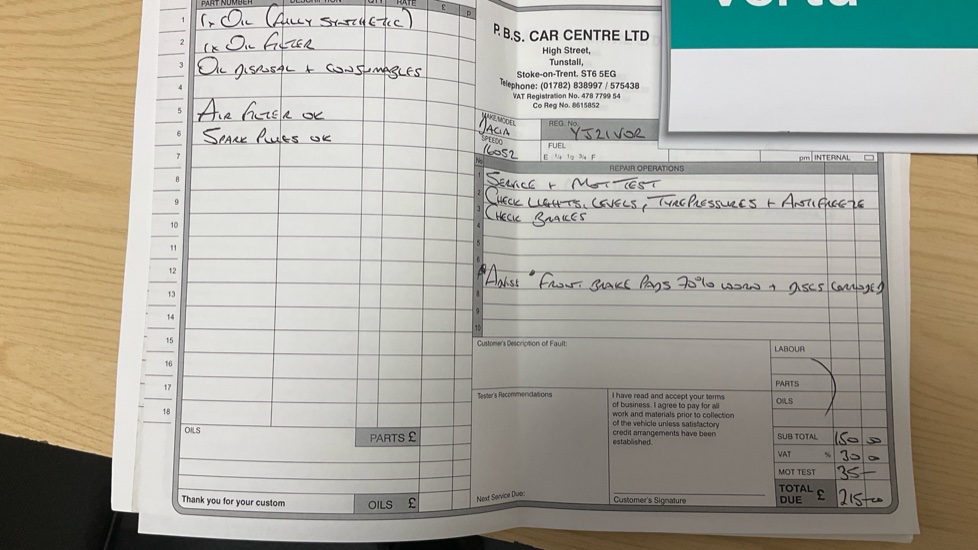 PART NUMBER DESCRIPTION QTY RATE £ P
1 1x OIL (FULLY SYNTHETIC)
2 1x OIL FILTER
3 OIL DISPOSAL + CONSUMABLES
4
5 AIR FILTER OK
6 SPARK PLUGS OK
7
8
9
10
11
12
13
14
15
16
17
18
OILS
PARTS £
Thank you for your custom
OILS £
P.B.S. CAR CENTRE LTD
High Street,
Tunstall,
Stoke-on-Trent. ST6 5EG
Telephone: (01782) 838997 / 575438
VAT Registration No. 478 7799 54
Co Reg No. 8615852
MAKE/MODEL
DACIA
REG. No.
YJ21VOR
SPEEDO
16052
FUEL
E 1/4 1/2 3/4 F
pm INTERNAL
No.
REPAIR OPERATIONS
1 SERVICE + MOT TEST
2 CHECK LIGHTS, LEVELS, TYRE PRESSURES + ANTIFREEZE
3 CHECK BRAKES
4
5
6
ADVISE FRONT BRAKE PADS 70% WORN + DISCS CORRODED
8
9
10
Customer's Description of Fault:
Tester's Recommendations
I have read and accept your terms
of business. I agree to pay for all
work and materials prior to collection
of the vehicle unless satisfactory
credit arrangements have been
established.
Next Service Due:
Customer's Signature
LABOUR
PARTS
OILS
SUB TOTAL 150 00
VAT % 30 00
MOT TEST 35 -
TOTAL DUE £ 215-00